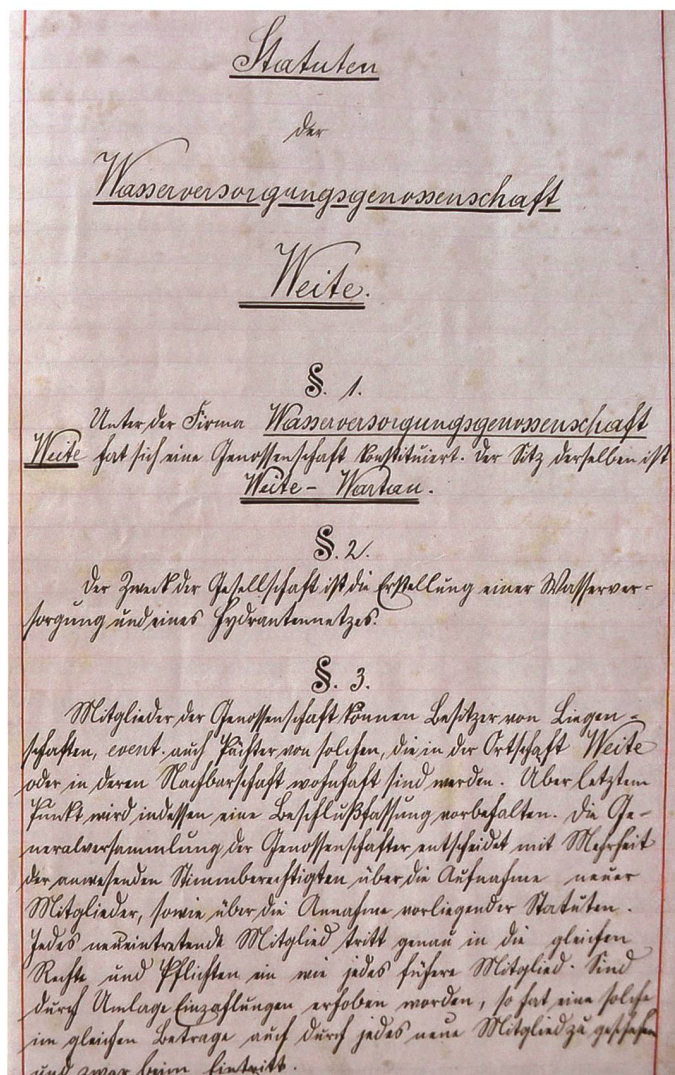 Statuten
der
Wasserversorgungsgenossenschaft
Weite.
§. 1.
Unter der Firma Wasserversorgungsgenossenschaft
Weite hat sich eine Genossenschaft konstituiert. Der Sitz derselben ist
Weite - Wartau.
§. 2.
Der Zweck der Gesellschaft ist die Erstellung einer Wasserver-
sorgung und eines Hydrantennetzes.
§. 3.
Mitglieder der Genossenschaft können Besitzer von Liegen-
schaften, event. auch Pächter von solchen, die in der Ortschaft Weite
oder in deren Nachbarschaft wohnhaft sind werden. Über letztem
Punkt wird indessen eine Beschlußfassung vorbehalten. Die Ge-
neralversammlung der Genossenschafter entscheidet mit Mehrheit
der anwesenden Stimmberechtigten über die Aufnahme neuer
Mitglieder, sowie über die Annahme vorliegender Statuten.
Jedes neueintretende Mitglied tritt genau in die gleichen
Rechte und Pflichten ein wie jedes frühere Mitglied. Sind
durch Umlage Einzahlungen erhoben worden, so hat eine solche
im gleichen Betrage auch durch jedes neue Mitglied zu geschehen
und zwar beim Eintritt.